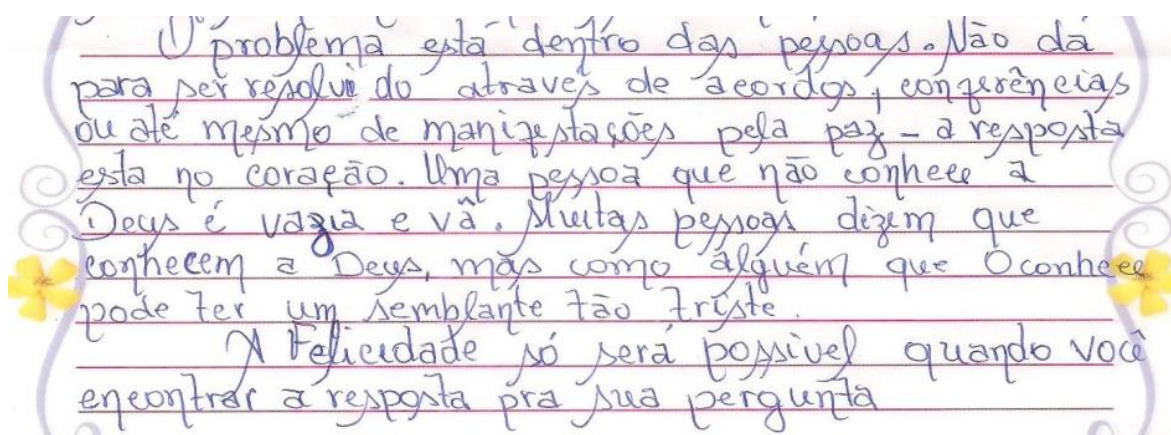 O problema está dentro das pessoas. Não dá
para ser resolvido através de acordos, conferências
ou até mesmo de manifestações pela paz - a resposta
esta no coração. Uma pessoa que não conhece a
Deus é vazia e vã. Muitas pessoas dizem que
conhecem a Deus, mas como alguém que O conhece
pode ter um semblante tão triste.
A Felicidade só será possivel quando você
encontrar a resposta pra sua pergunta